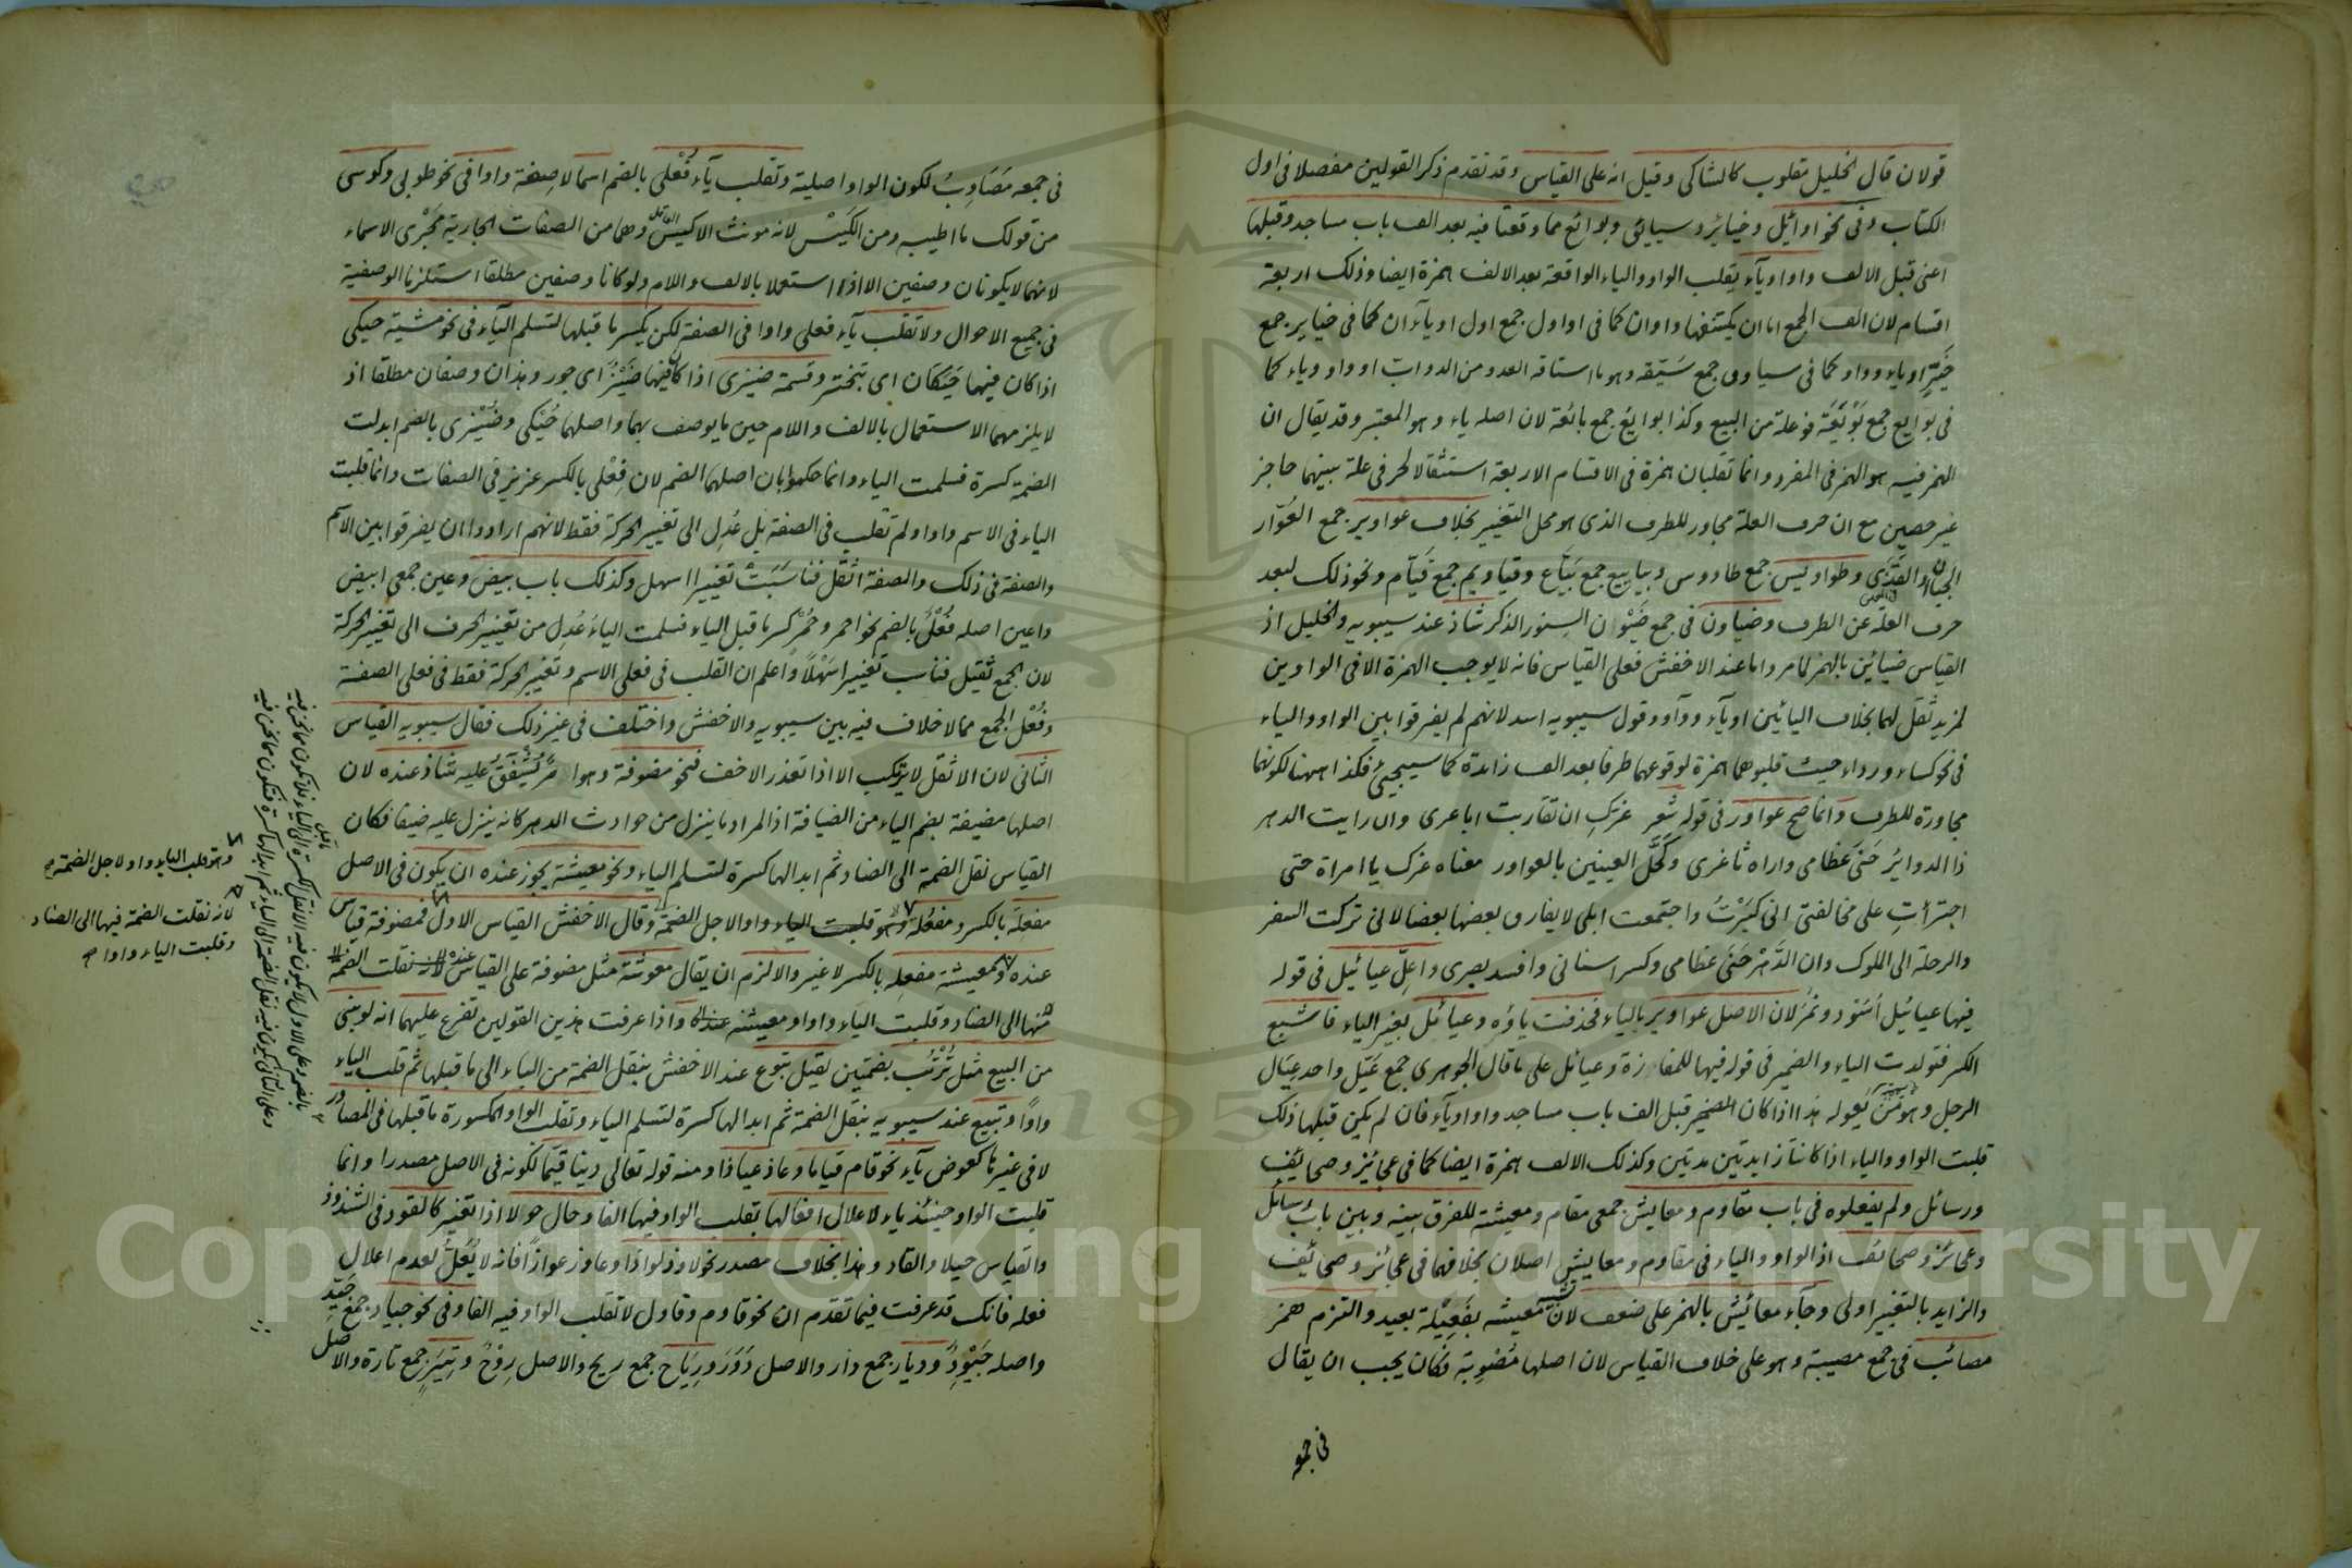 قولان قال الخليل مقلوب كالشاكى وقيل انه على القياس وقد تقدم ذكر القولين مفصلا فى اول
الكتاب وفى نحو اوائل وخيائر وسيائق وبوائع مما وقعتا فيه بعد الف باب مساجد وقبلها
اعنى قبل الالف واو او ياء يقلب الواو والياء الواقعة بعد الالف همزة ايضا وذلك اربعة
اقسام لان الف الجمع اما ان يكتنفها واوان كما فى اواول جمع اول او ياآن كما فى خيائر جمع
خيّر او ياء وواو كما فى سياوق جمع سيّقه وهو ما استاقه العدو من الدواب او واو وياء كما
فى بوايع جمع بويعة فوعلة من البيع وكذا بوايع جمع بائعة لان اصله ياء وهو المعتبر وقد يقال ان
الهمز فيه هو الهمز فى المفرد وانما تقلبان همزة فى الاقسام الاربعة استثقالا لحرفى علة بينهما حاجز
غير حصين مع ان حرف العلة مجاور للطرف الذى هو محل التغيير بخلاف عواوير جمع العوّار
الجبان والقذى وطواويس جمع طاووس وبياييع جمع بيّاع وقياويم جمع قيّام ونحو ذلك لبعد
حرف العلة عن الطرف وضياون فى جمع ضيون السنور الذكر شاذ عند سيبويه والخليل اذ
القياس ضيائن بالهمز لما مر واما عند الاخفش فعلى القياس فانه لا يوجب الهمزة الا فى الواوين
لمزيد ثقل لهما بخلاف اليائين او ياء وواو وقول سيبويه اسد لانهم لم يفرقوا بين الواو والياء
فى نحو كساء ورداء حيث قلبوهما همزة لوقوعهما طرفا بعد الف زائدة كما سيجئ فكذا ههنا لكونهما
مجاورة للطرف وانما صح عواور فى قوله شعر غرّك ان تقاربت اباعرى وان رايت الدهر
ذا الدوائر حنى عظامى واراه ثاغرى وكحّل العينين بالعواور معناه غرك يا امراة حتى
اجترأتِ على مخالفتى انى كبرتُ واجتمعت ابلى لا يفارق بعضها بعضا لانى تركت السفر
والرحلة الى الملوك وان الدهر حنى عظامى وكسر اسنانى وافسد بصرى واعلّ عيائيل فى قوله
فيها عيائيل اسود ونمر لان الاصل عواوير بالياء فحذفت ياؤه وعيائل بغير الياء فاشبع
الكسر فتولدت الياء والضمير فى قوله فيها للمفازة وعيائل على ما قال الجوهرى جمع عيّل واحد عيال
الرجل وهو من يعوله هذا اذا كان قبل الف باب مساجد واو او ياء فان لم يكن قبلها ذلك
قلبت الواو والياء اذا كانتا زايدتين مدتين وكذلك الالف همزة ايضا كما فى عجائز وصحائف
ورسائل ولم يفعلوه فى باب مقاوم ومعايش جمعى مقام ومعيشة للفرق بينه وبين باب رسائل
وعجائز وصحائف اذ الواو والياء فى مقاوم ومعايش اصلان بخلافهما فى عجائز وصحائف
والزايد بالتغيير اولى وجاء معائش بالهمز على ضعف لان معيشه بفعيلة بعيد والتزم همز
مصائب فى جمع مصيبة وهو على خلاف القياس لان اصلها مصوبة فكان يجب ان يقال
فى جمعه
فى جمعه مصاوب لكون الواو اصلية وتقلب ياء فعلى بالضم اسما لا صفة واوا فى نحو طوبى وكوسى
من قولك ما اطيبه ومن الكيس لانه مونث الاكيس وهما من الصفات الجارية مجرى الاسماء
لانهما لا يكونان وصفين الا اذا استعملا بالالف واللام ولو كانا وصفين مطلقا استلزما الوصفية
فى جميع الاحوال ولا تقلب ياء فعلى واوا فى الصفة لكن يكسر ما قبلها لتسلم الياء فى نحو مشية حيكى
اذا كان فيها حيكان اى تبختر وقسمة ضيزى اذا كان فيها ضيز اى جور وهذان وصفان مطلقا اذ
لا يلزمهما الاستعمال بالالف واللام حين ما يوصف بهما واصلهما حُيكى وضُيزى بالضم ابدلت
الضمة كسرة فسلمت الياء وانما حكموا بان اصلهما الضم لان فِعلى بالكسر عزيز فى الصفات وانما قلبت
الياء فى الاسم واوا ولم تقلب فى الصفة بل عُدل الى تغيير الحركة فقط لانهم ارادوا ان يفرقوا بين الاسم
والصفة فى ذلك والصفة اثقل فناسبت تغييرا اسهل وكذلك باب بيض وعين جمعى ابيض
واعين اصله فُعل بالضم نحو احمر وحُمر كسر ما قبل الياء فسلمت الياء عُدل من تغيير الحرف الى تغيير الحركة
لان الجمع ثقيل فناسب تغييرا سهلا واعلم ان القلب فى فعلى الاسم وتغيير الحركة فقط فى فعلى الصفة
وفُعل الجمع مما لا خلاف فيه بين سيبويه والاخفش واختلف فى غير ذلك فقال سيبويه القياس
الثانى لان الاثقل لا يرتكب الا اذا تعذر الاخف فنحو مضوفة وهو امر يُشفَق عليه شاذ عنده لان
اصلها مضيفة بضم الياء من الضيافة اذ المراد ما ينزل من حوادث الدهر كانه ينزل عليه ضيفا فكان
القياس نقل الضمة الى الضاد ثم ابدالها كسرة لتسلم الياء ونحو معيشة يجوز عنده ان يكون فى الاصل
مفعِلة بالكسر ومفعُلة وقال الاخفش القياس الاول فمضوفة قياس
عنده ومعيشة مفعِله بالكسر لا غير والا لزم ان يقال معوشة مثل مضوفة على القياس عنده
واذا عرفت هذين القولين تفرع عليهما انه لو بنى
من البيع مثل تُرتُب بضمتين لقيل تبوع عند الاخفش بنقل الضمة من الياء الى ما قبلها ثم قلب الياء
واوا وتبيع عند سيبويه بنقل الضمة ثم ابدالها كسرة لتسلم الياء وتقلب الواو المكسورة ما قبلها فى المصادر
لا فى غيرها كعوض ياء نحو قام قياما وعاذ عياذا ومنه قوله تعالى دينا قيما لكونه فى الاصل مصدرا وانما
قلبت الواو حينئذ ياء لاعلال افعالها بقلب الواو فيها الفا وحال حولا اذا تغير كالقود فى الشذوذ
والقياس حيلا والقاد وهذا بخلاف مصدر نحو لاوذ لواذا وعاوذ عواذا فانه لا يُعلّ لعدم اعلال
فعله فانك قد عرفت فيما تقدم ان نحو قاوم وقاول لا تقلب الواو فيه الفا وفى نحو جياد جمع جيّد
واصله جيود وديار جمع دار والاصل دَوَر ورياح جمع ريح والاصل رِوْح وتِيَر جمع تارة والاصل
وهو قلب الياء واوا لاجل الضمة
لانه نقلت الضمة فيها الى الضاد
وقلبت الياء واوا
Copyright © King Saud University
1957